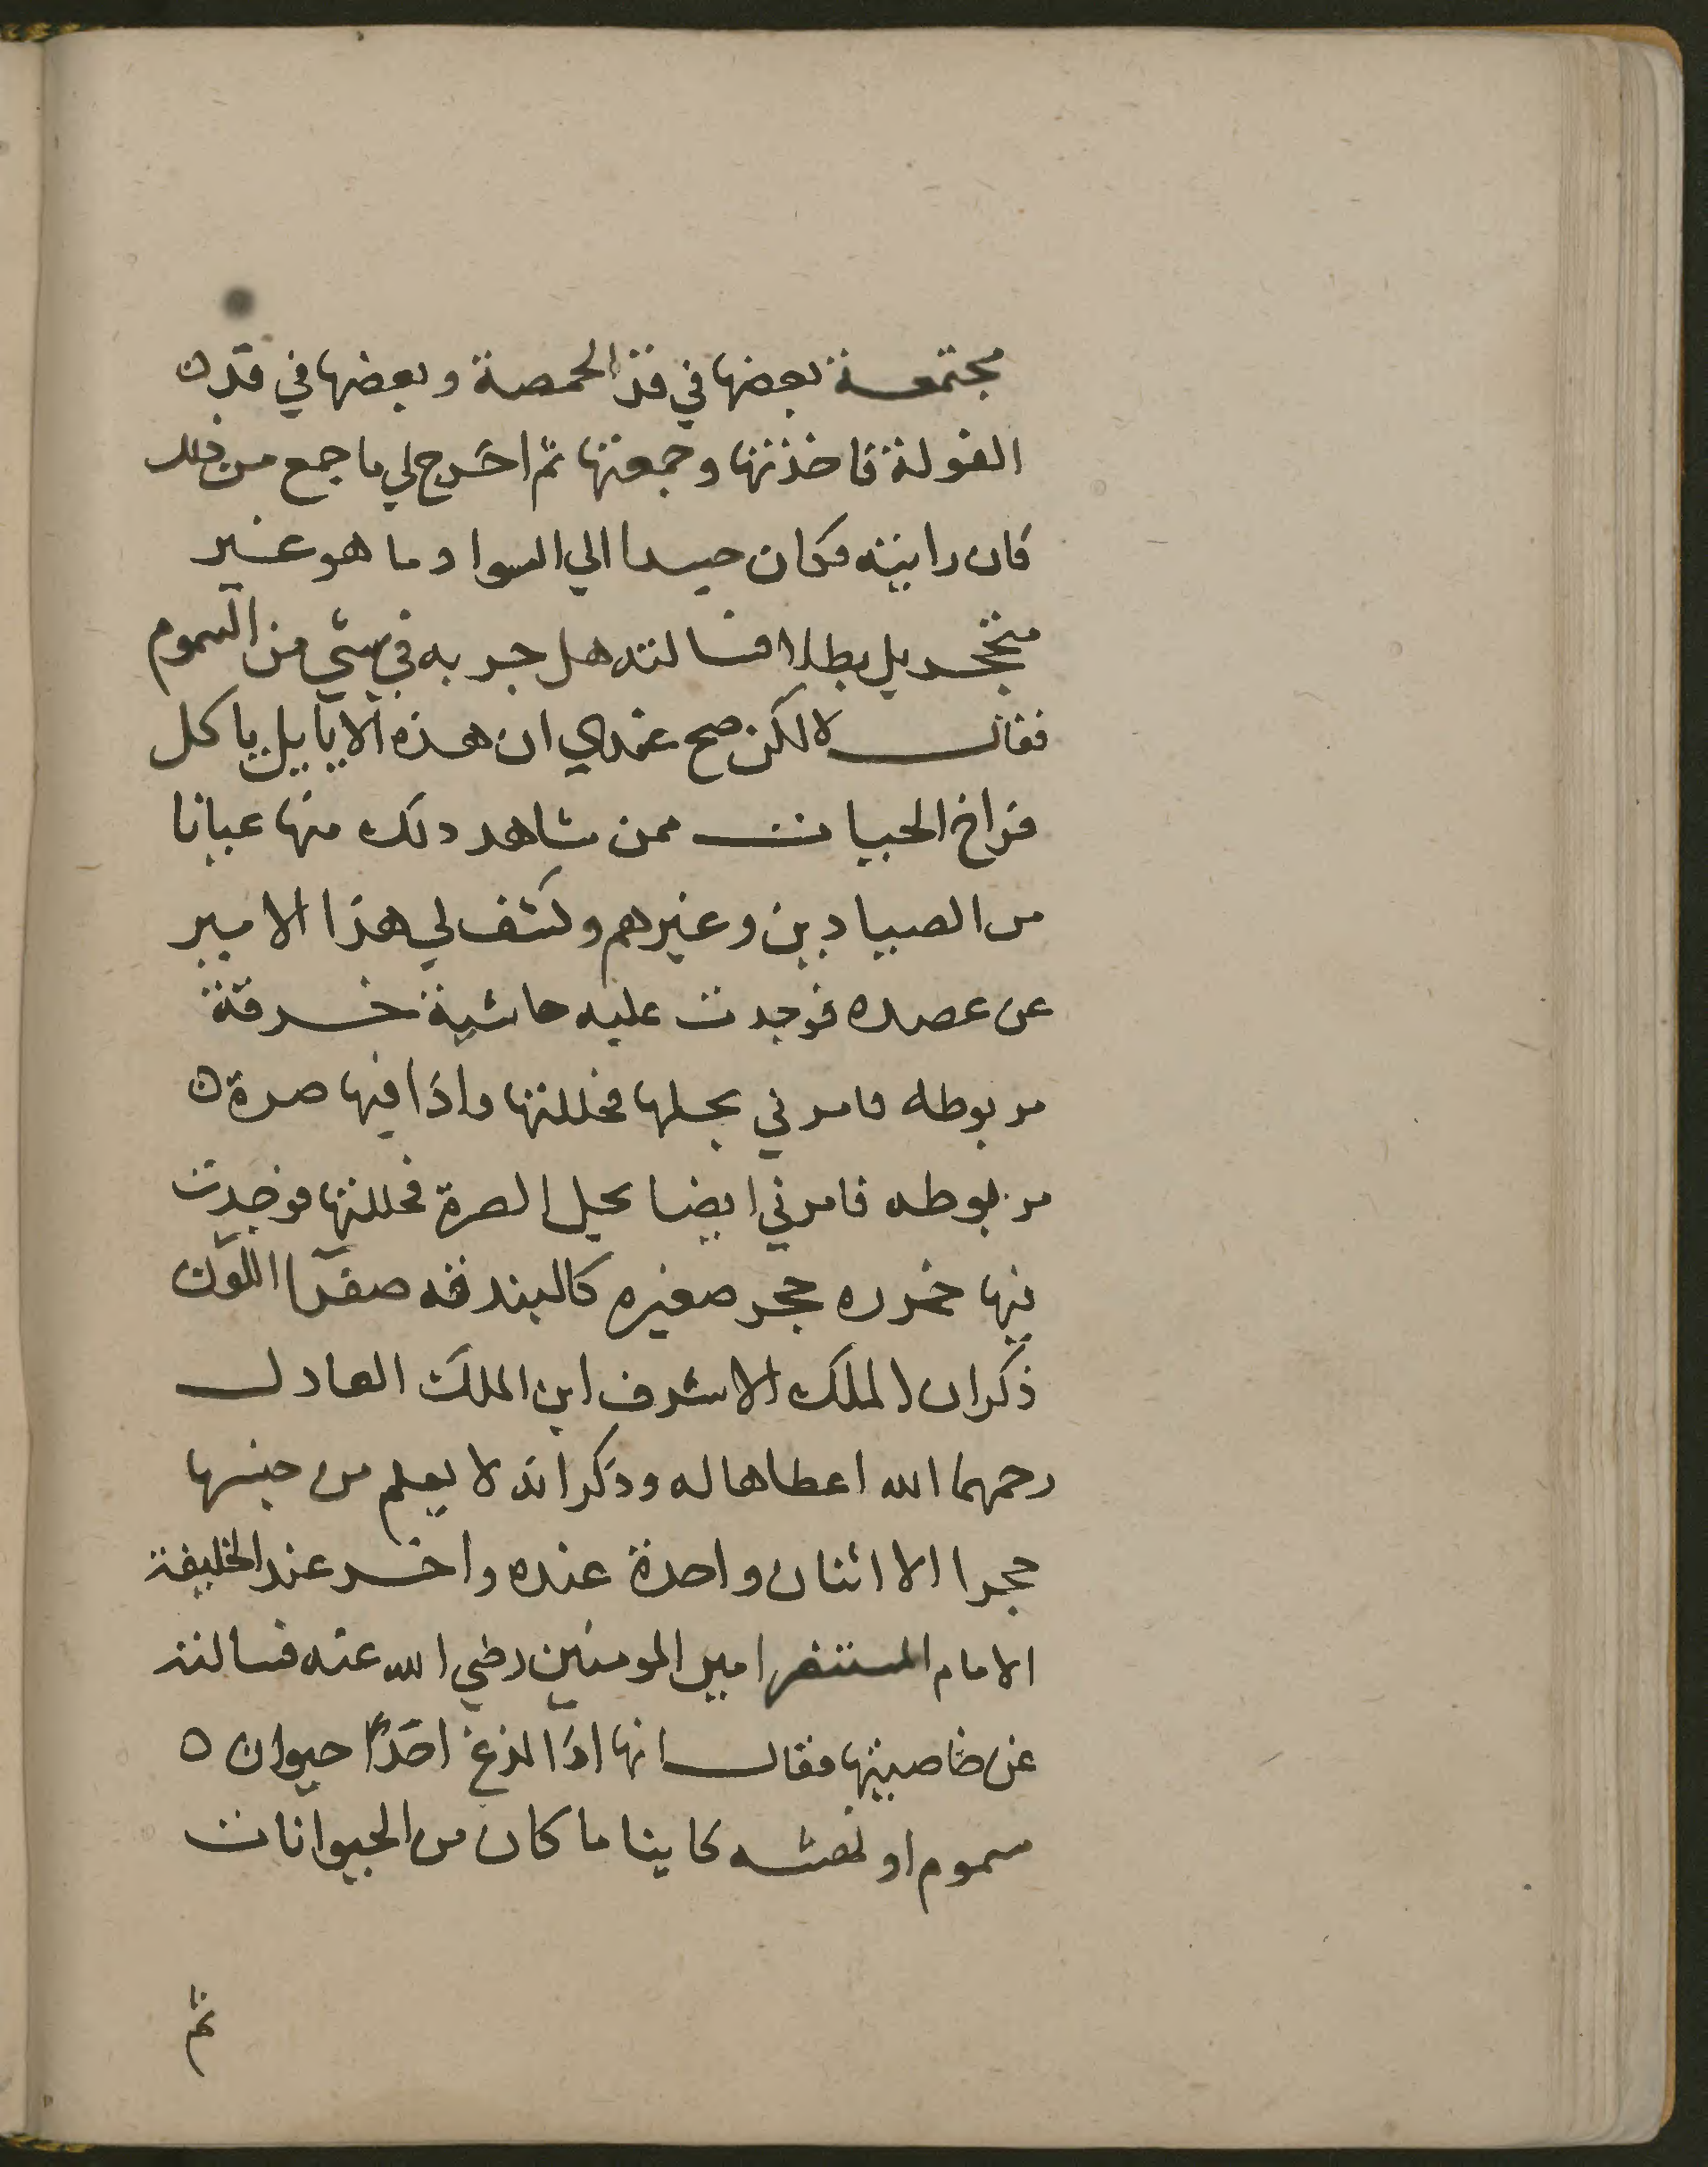 مجتمعة بعضها في قدر الحمصة وبعضها في قدر
الفولة فاخذتها وجمعتها ثم اخرج لي ما جمع من ذلك
فان رايته فكان جيدا الي السواد ما هو غير
متحجر بل بطلا فسالته هل جربه في شي من السموم
فقال لا لكن صح عندي ان هذه الايايل ياكل
فراخ الحيات ممن شاهد ذلك منها عيانا
من الصيادين وغيرهم وكشف لي هذا الامير
عن عضده فوجدت عليه حاشية خرقة
مربوطه فامرني بحلها فحللتها واذا فيها صرة
مربوطه فامرني ايضا بحل الصرة فحللتها فوجدت
فيها خرزه حجر صغيره كالبندقه صفرا اللون
ذكر ان الملك الاشرف ابن الملك العادل
رحمهما الله اعطاها له وذكر انه لا يعلم من جنسها
حجرا الا اثنان واحدة عنده واخر عند الخليفة
الامام المستنصر امير المومنين رضي الله عنه فسالته
عن خاصيتها فقال انها اذا لدغ احدًا حيوان
سموم او نهشه كاينا ما كان من الحيوانات
ثم